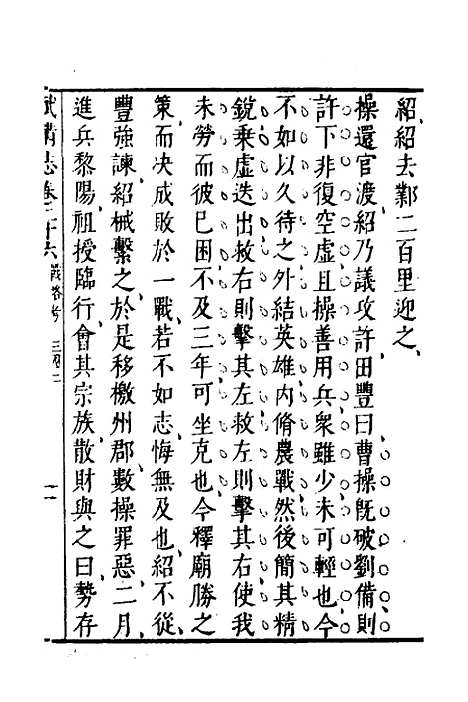 紹紹去鄴二百里迎之
操還官渡紹乃議攻許田豐曰曹操旣破劉備則
許下非復空虛且操善用兵衆雖少未可輕也今
不如以久待之外結英雄内脩農戰然後簡其精
銳乗虛迭出救右則擊其左救左則擊其右使我
未勞而彼已困不及三年可坐克也今釋廟勝之
策而决成敗於一戰若不如志悔無及也紹不從
豐強諫紹械繫之於是移檄州郡數操罪惡二月
進兵黎陽祖授臨行會其宗族散財與之曰勢存
武備志卷二十六 戰畧考 三國二 十一